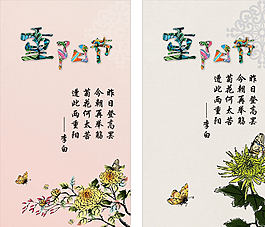 重阳节
昨日登高罢
今朝再举觞
菊花何太苦
遭此两重阳
——李白
重阳节
昨日登高罢
今朝再举觞
菊花何太苦
遭此两重阳
——李白